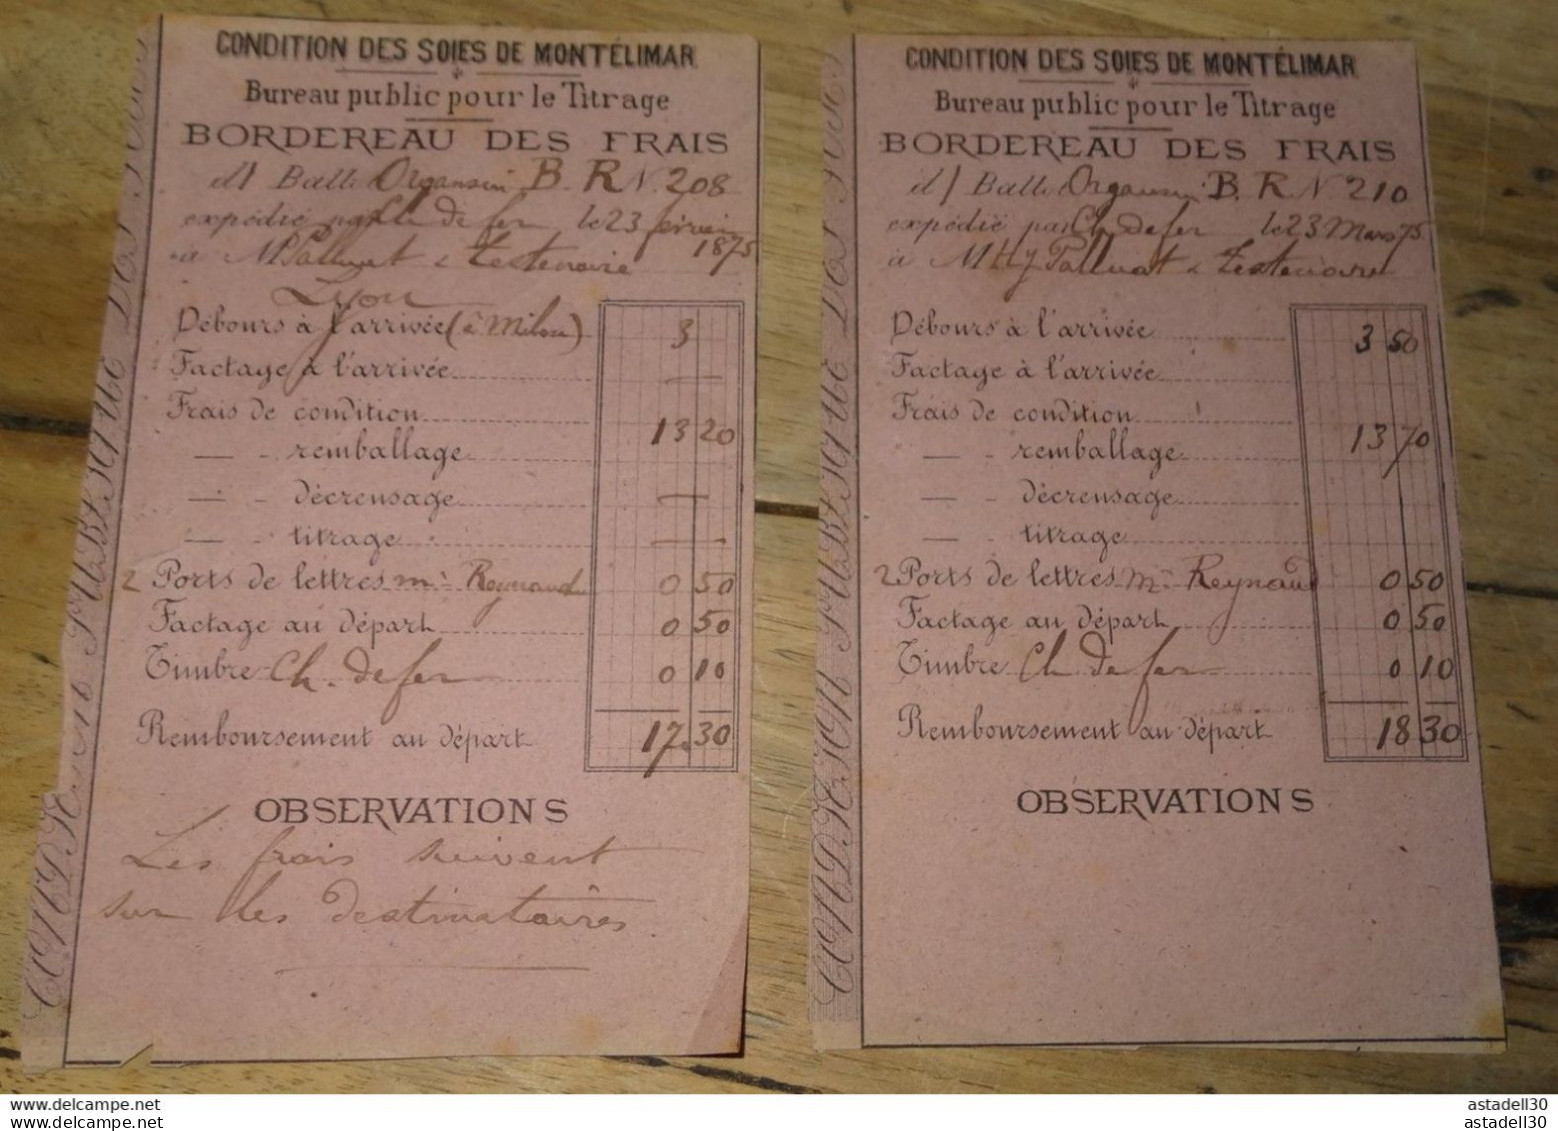 CONDITION DES SOIES DE MONTÉLIMAR
Bureau public pour le Titrage
BORDEREAU DES FRAIS
d'1 Balle Organsin B. R N. 208
expédié par Ch. de fer le 23 février 1875
à M Palluat & Testenoire
Lyon
Débours à l'arrivée (à Milou) 3
Factage à l'arrivée —
Frais de condition
— - remballage 13 20
— - décreusage —
— - titrage —
2 Ports de lettres Mr Reynaud 0 50
Factage au départ 0 50
Timbre Ch. de fer 0 10
Remboursement au départ 17.30
OBSERVATIONS
Les frais suivent
sur les destinataires.
CONDITION PUBLIQUE DES SOIES
CONDITION DES SOIES DE MONTÉLIMAR
Bureau public pour le Titrage
BORDEREAU DES FRAIS
d'1 Balle Organsin B. R N. 210
expédié par Ch de fer le 23 Mars 75
à M Palluat & Testenoire
Débours à l'arrivée 3 50
Factage à l'arrivée
Frais de condition
— - remballage 13 70
— - décreusage
— - titrage
2 Ports de lettres Mr Reynaud 0 50
Factage au départ 0 50
Timbre Ch. de fer 0 10
Remboursement au départ 18 30
OBSERVATIONS
CONDITION PUBLIQUE DES SOIES
www.delcampe.net astadell30
www.delcampe.net astadell30